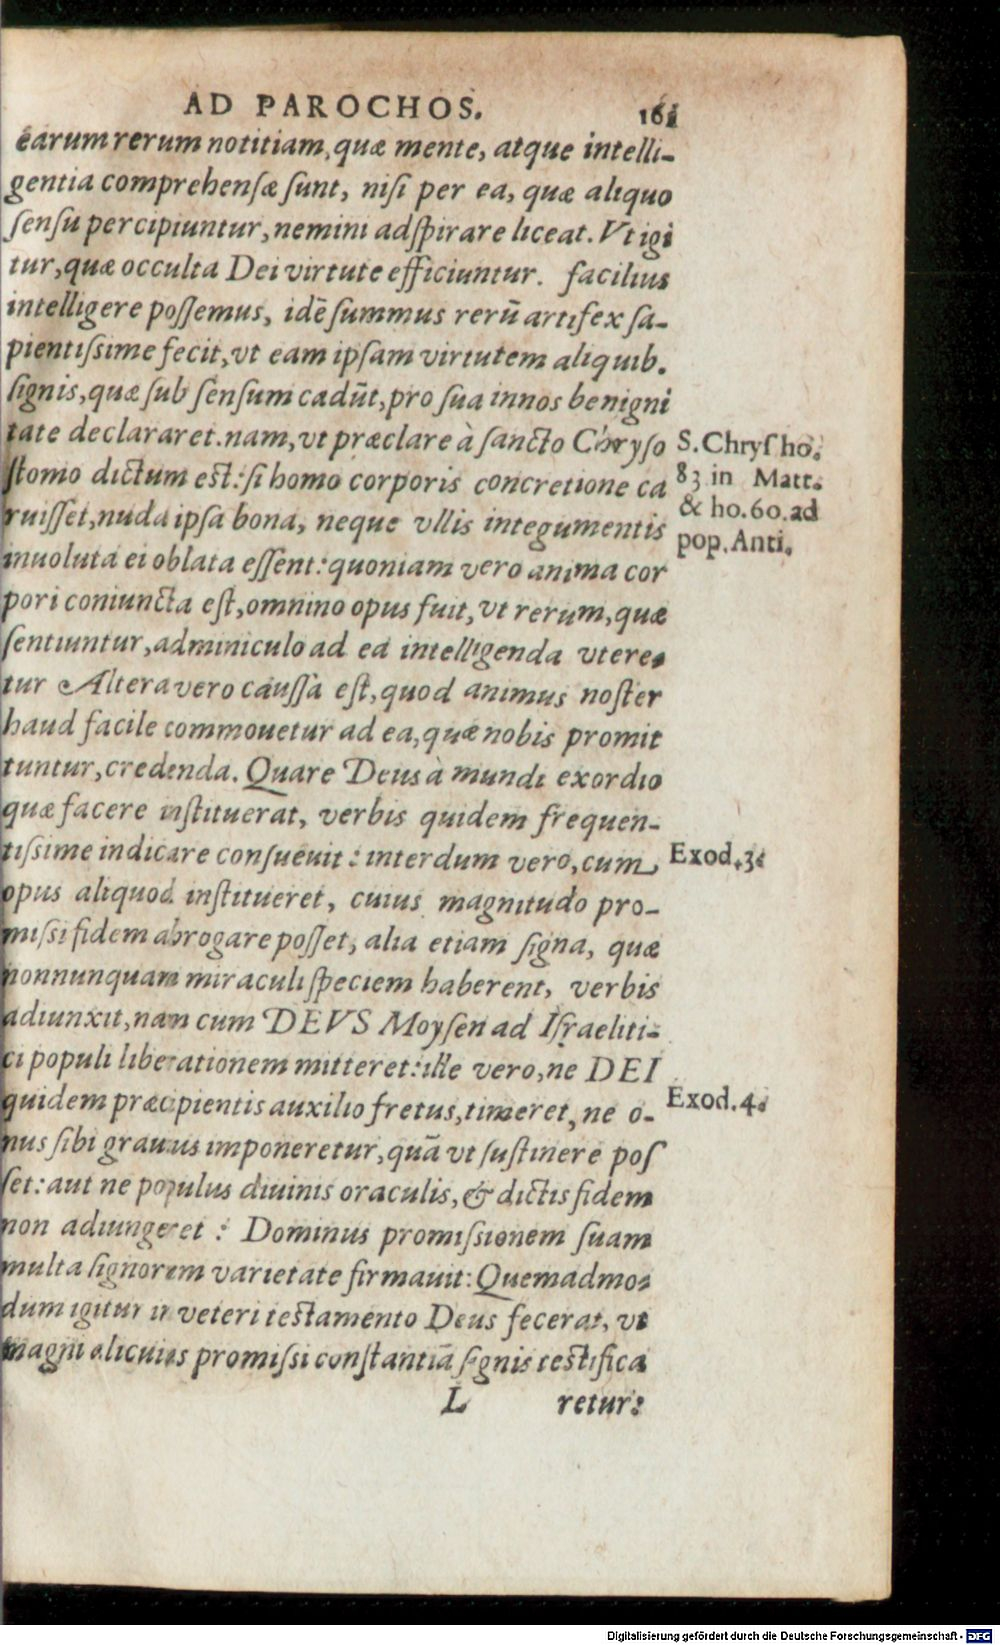 AD PAROCHOS. 161
earum rerum notitiam, quæ mente, atque intelli-
gentia comprehensæ sunt, nisi per ea, quæ aliquo
sensu percipiuntur, nemini adspirare liceat. Vt igi
tur, quæ occulta Dei virtute efficiuntur. facilius
intelligere possemus, idē summus rerū artifex sa-
pientissime fecit, vt eam ipsam virtutem aliquib.
signis, quæ sub sensum cadūt, pro sua in nos benigni
tate declararet. nam, vt præclare à sancto Chryso
stomo dictum est: si homo corporis concretione ca
ruisset, nuda ipsa bona, neque vllis integumentis
inuoluta ei oblata essent: quoniam vero anima cor
pori coniuncta est, omnino opus fuit, vt rerum, quæ
sentiuntur, adminiculo ad ea intelligenda vtere-
tur Altera vero caussa est, quod animus noster
haud facile commouetur ad ea, quæ nobis promit
tuntur, credenda. Quare Deus à mundi exordio
quæ facere instituerat, verbis quidem frequen-
tissime indicare consueuit: interdum vero, cum
opus aliquod institueret, cuius magnitudo pro-
missi fidem abrogare posset, alia etiam signa, quæ
nonnunquam miraculi speciem haberent, verbis
adiunxit, nam cum DEVS Moysen ad Israeliti-
ci populi liberationem mitteret: ille vero, ne DEI
quidem præcipientis auxilio fretus, timeret, ne o-
nus sibi grauius imponeretur, quā vt sustinere pos
set: aut ne populus diuinis oraculis, & dictis fidem
non adiungeret: Dominus promissionem suam
multa signorum varietate firmauit: Quemadmo-
dum igitur in veteri testamento Deus fecerat, vt
magni alicuius promissi constantiā signis testifica
L retur:
S. Chrys ho.
83 in Matt.
& ho. 60. ad
pop. Anti.
Exod. 3.
Exod. 4.
Digitalisierung gefördert durch die Deutsche Forschungsgemeinschaft - DFG